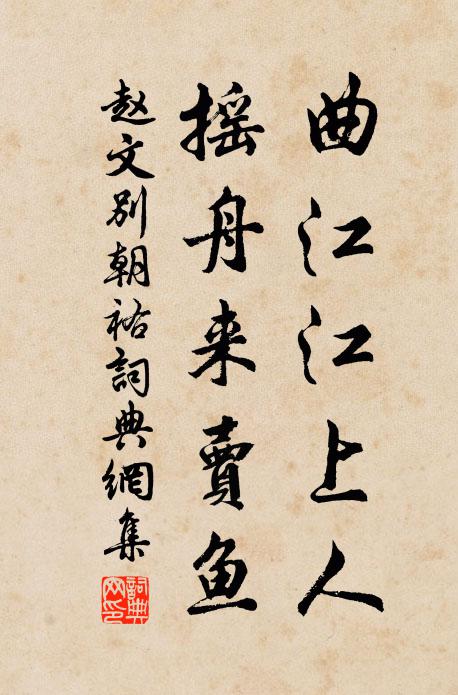 曲江江上人
摇舟来賣鱼
赵文别朝裕詞典網集
詞典
网印